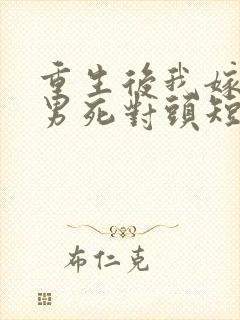 重生後我嫁
男死對頭短
布仁克